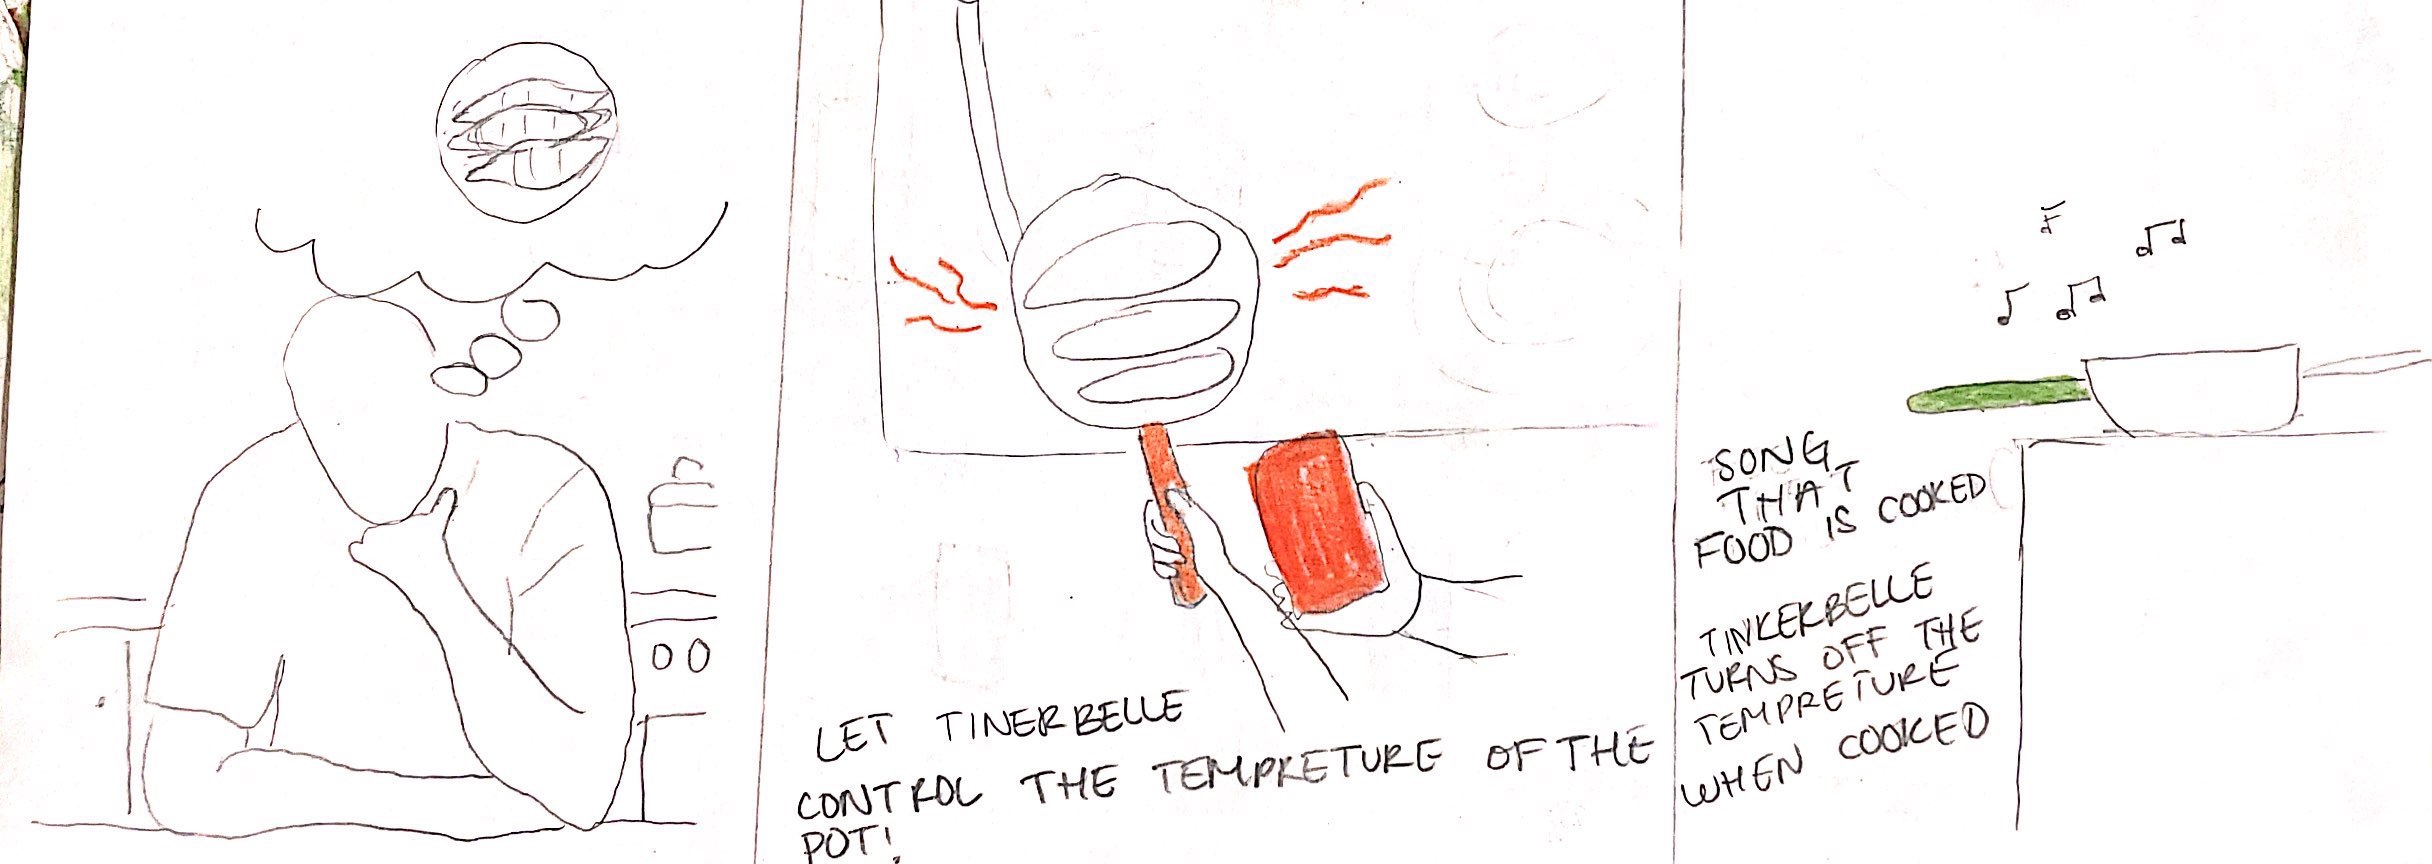 LET TINERBELLE
CONTROL THE TEMPRETURE OF THE
POT!
SONG
THAT
FOOD IS COOKED
TINKERBELLE
TURNS OFF THE
TEMPRETURE
WHEN COOKED